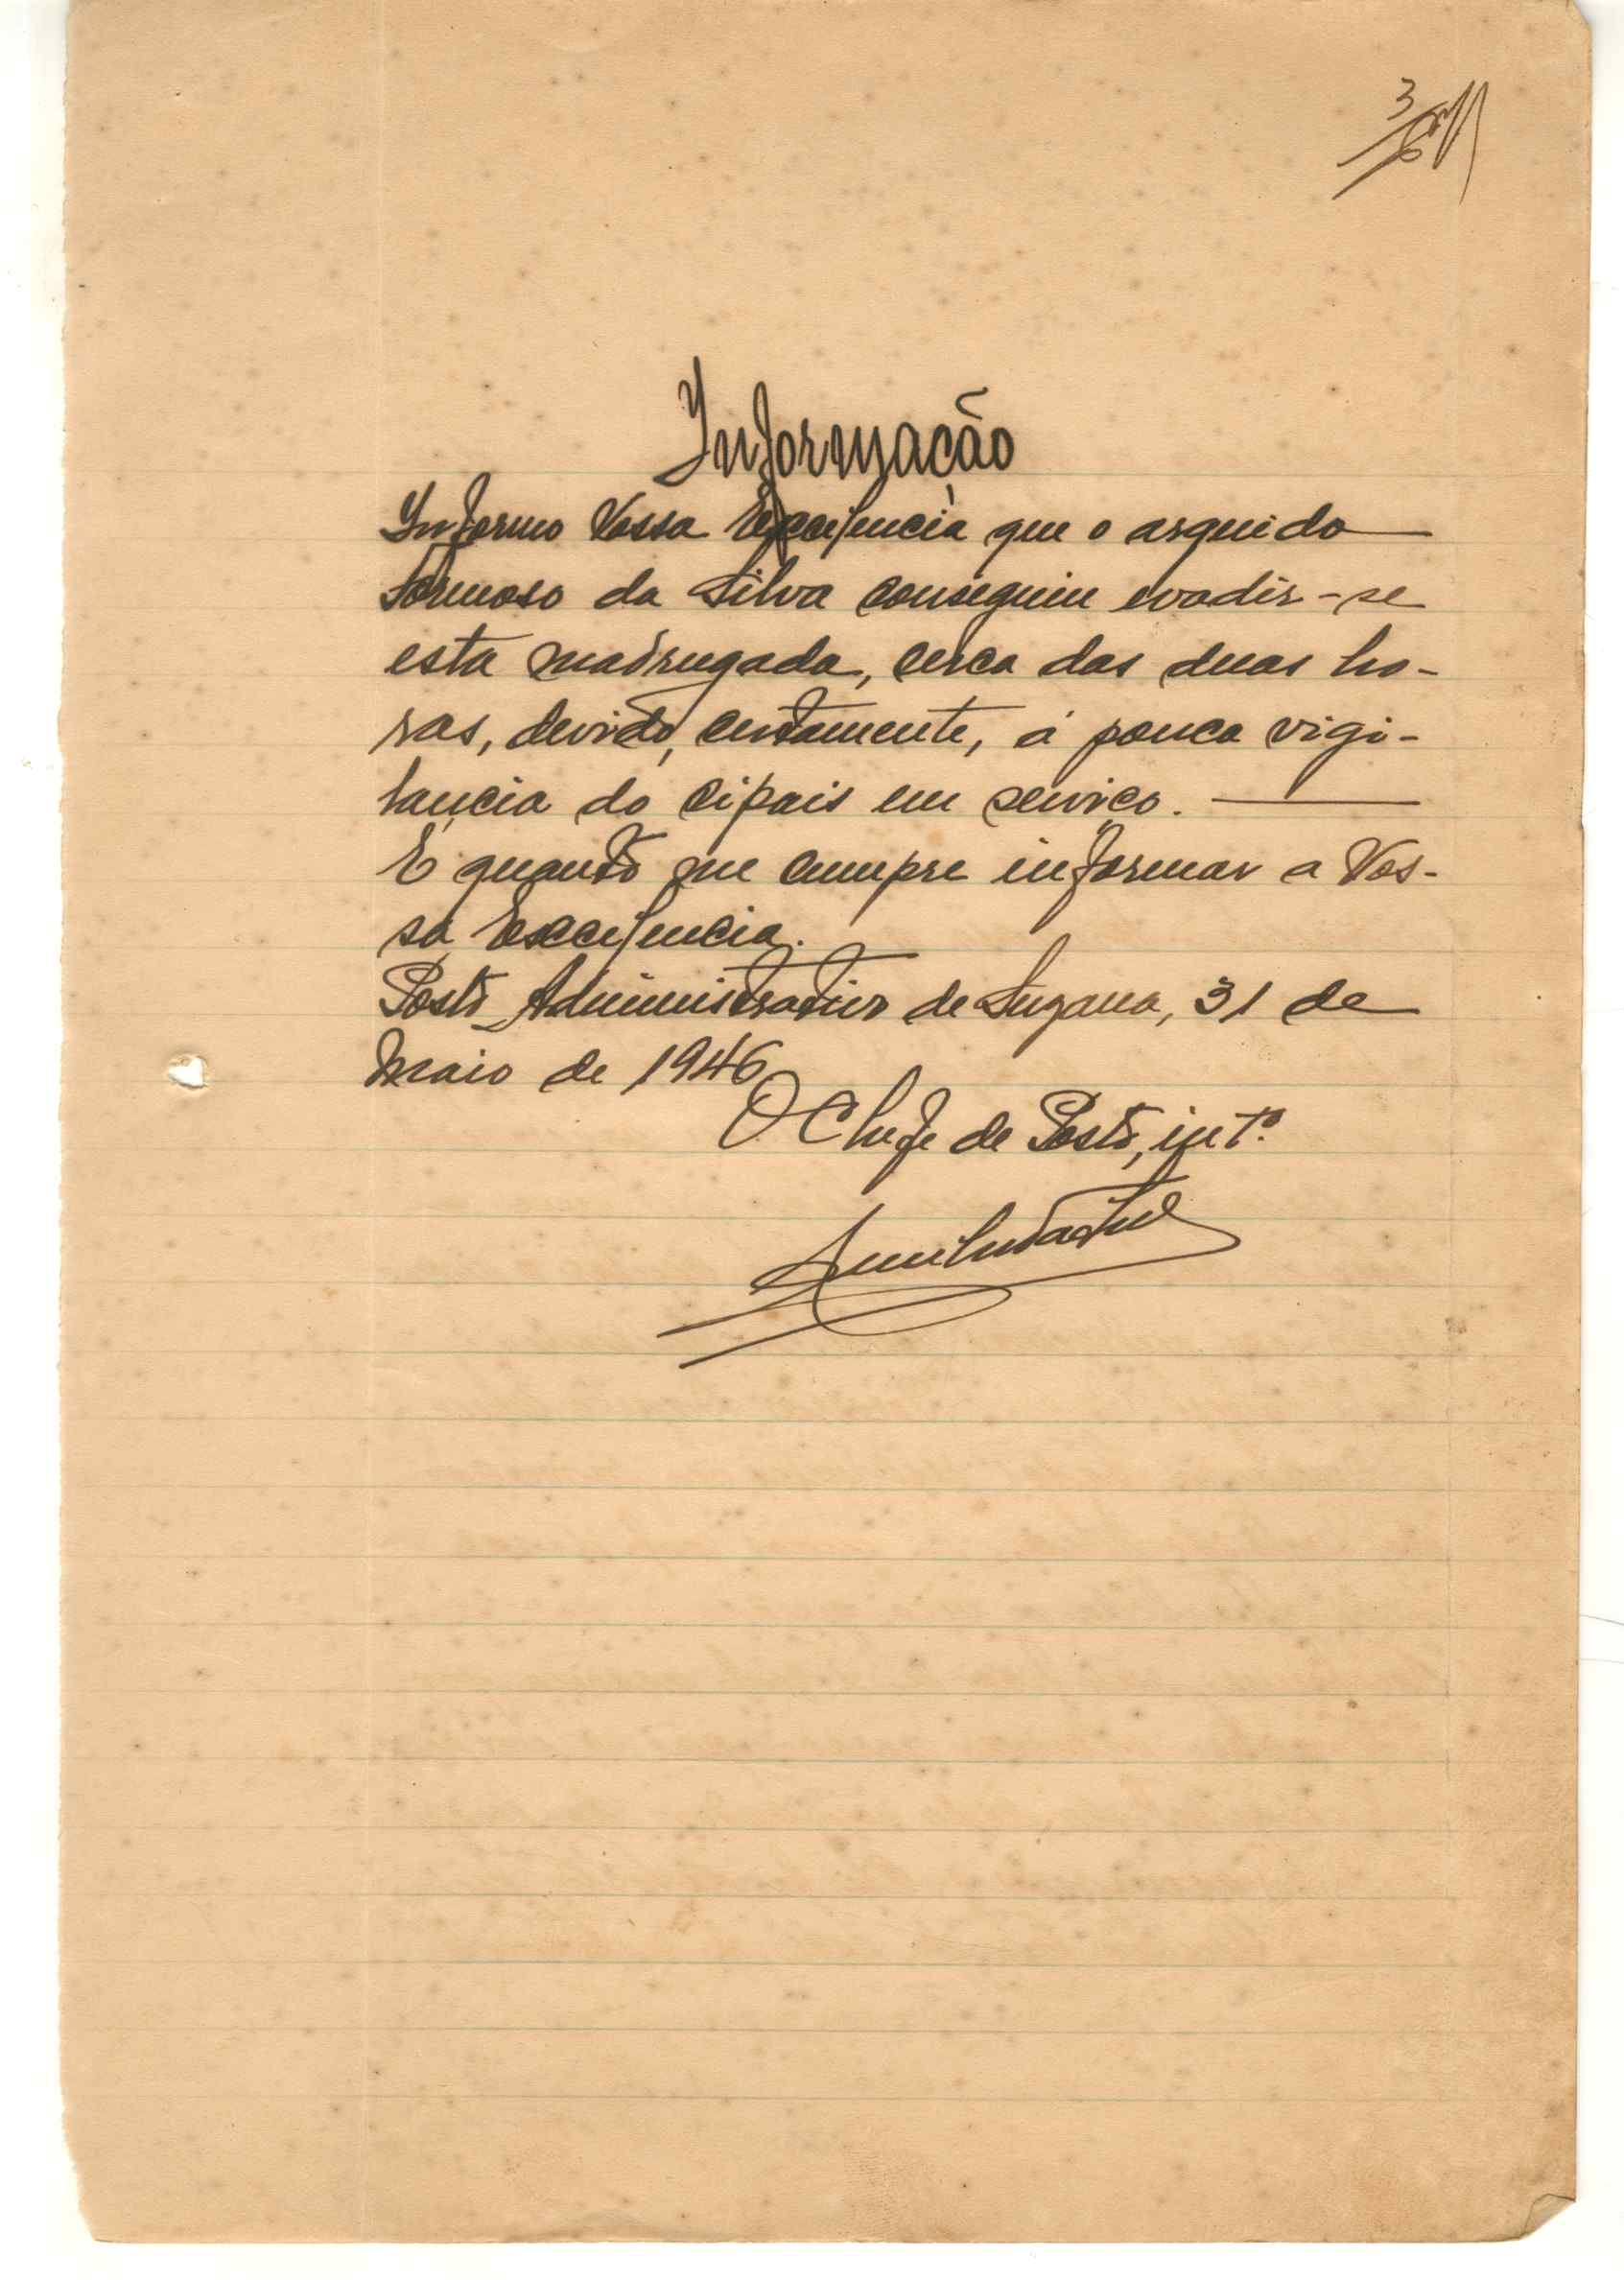 3
Informação
Informo Vossa Excelencia que o arguido
Formoso da Silva conseguiu evadir-se
esta madrugada, cerca das duas ho-
ras, devido, certamente, á pouca vigi-
lancia do cipais em serviço.
É quanto me cumpre informar a Vos-
sa Excelencia.
Posto Administrativo de Suzana, 31 de
Maio de 1946
O Chefe de Posto, int.º